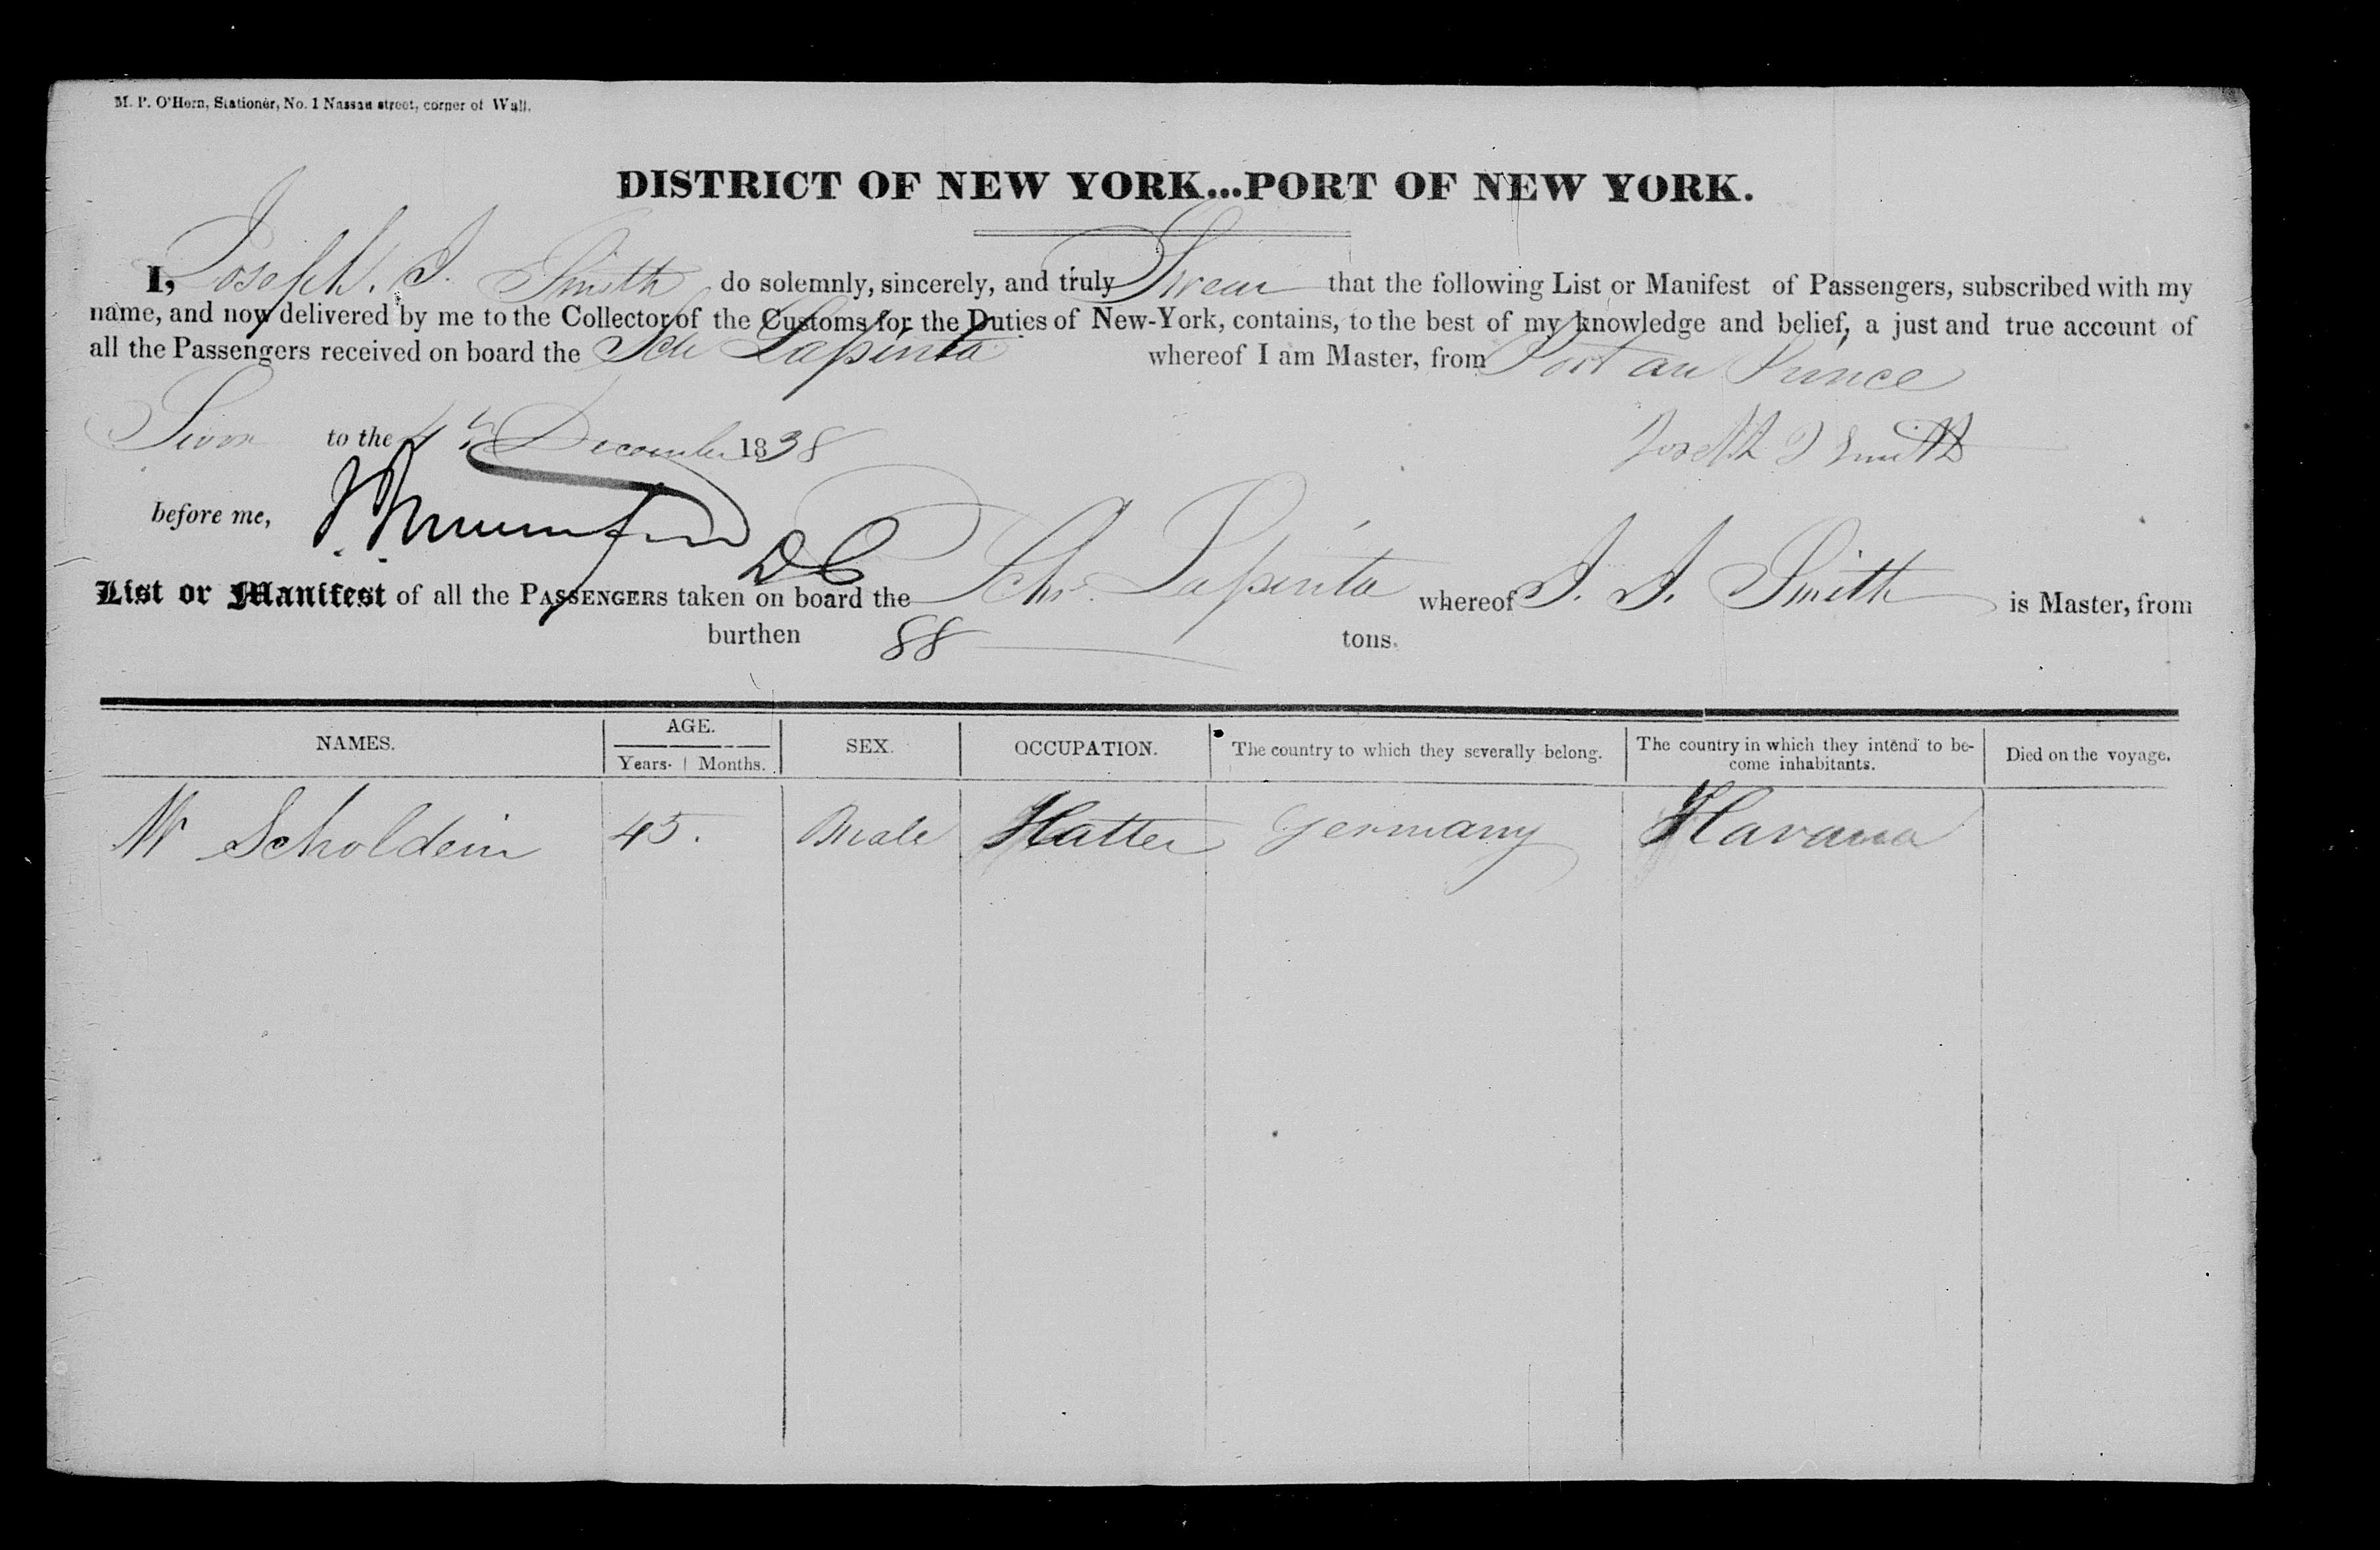 M. P. O'Hern, Stationer, No. 1 Nassau street, corner of Wall.
DISTRICT OF NEW YORK...PORT OF NEW YORK.
I, Joseph. I. Smith do solemnly, sincerely, and truly Swear that the following List or Manifest of Passengers, subscribed with my
name, and now delivered by me to the Collector of the Customs for the Duties of New-York, contains, to the best of my knowledge and belief, a just and true account of
all the Passengers received on board the Sch Lapinta whereof I am Master, from Port au Prince
Sworn to the 4th December 1838 Joseph I Smith
before me, DC
List or Manifest of all the PASSENGERS taken on board the Schr. Lapinta whereof J. I. Smith is Master, from
burthen 88 tons.
NAMES. AGE. Years. Months. SEX. OCCUPATION. The country to which they severally belong. The country in which they intend to become inhabitants. Died on the voyage.
Mr Scholdein 45. Male Hatter Germany Havana